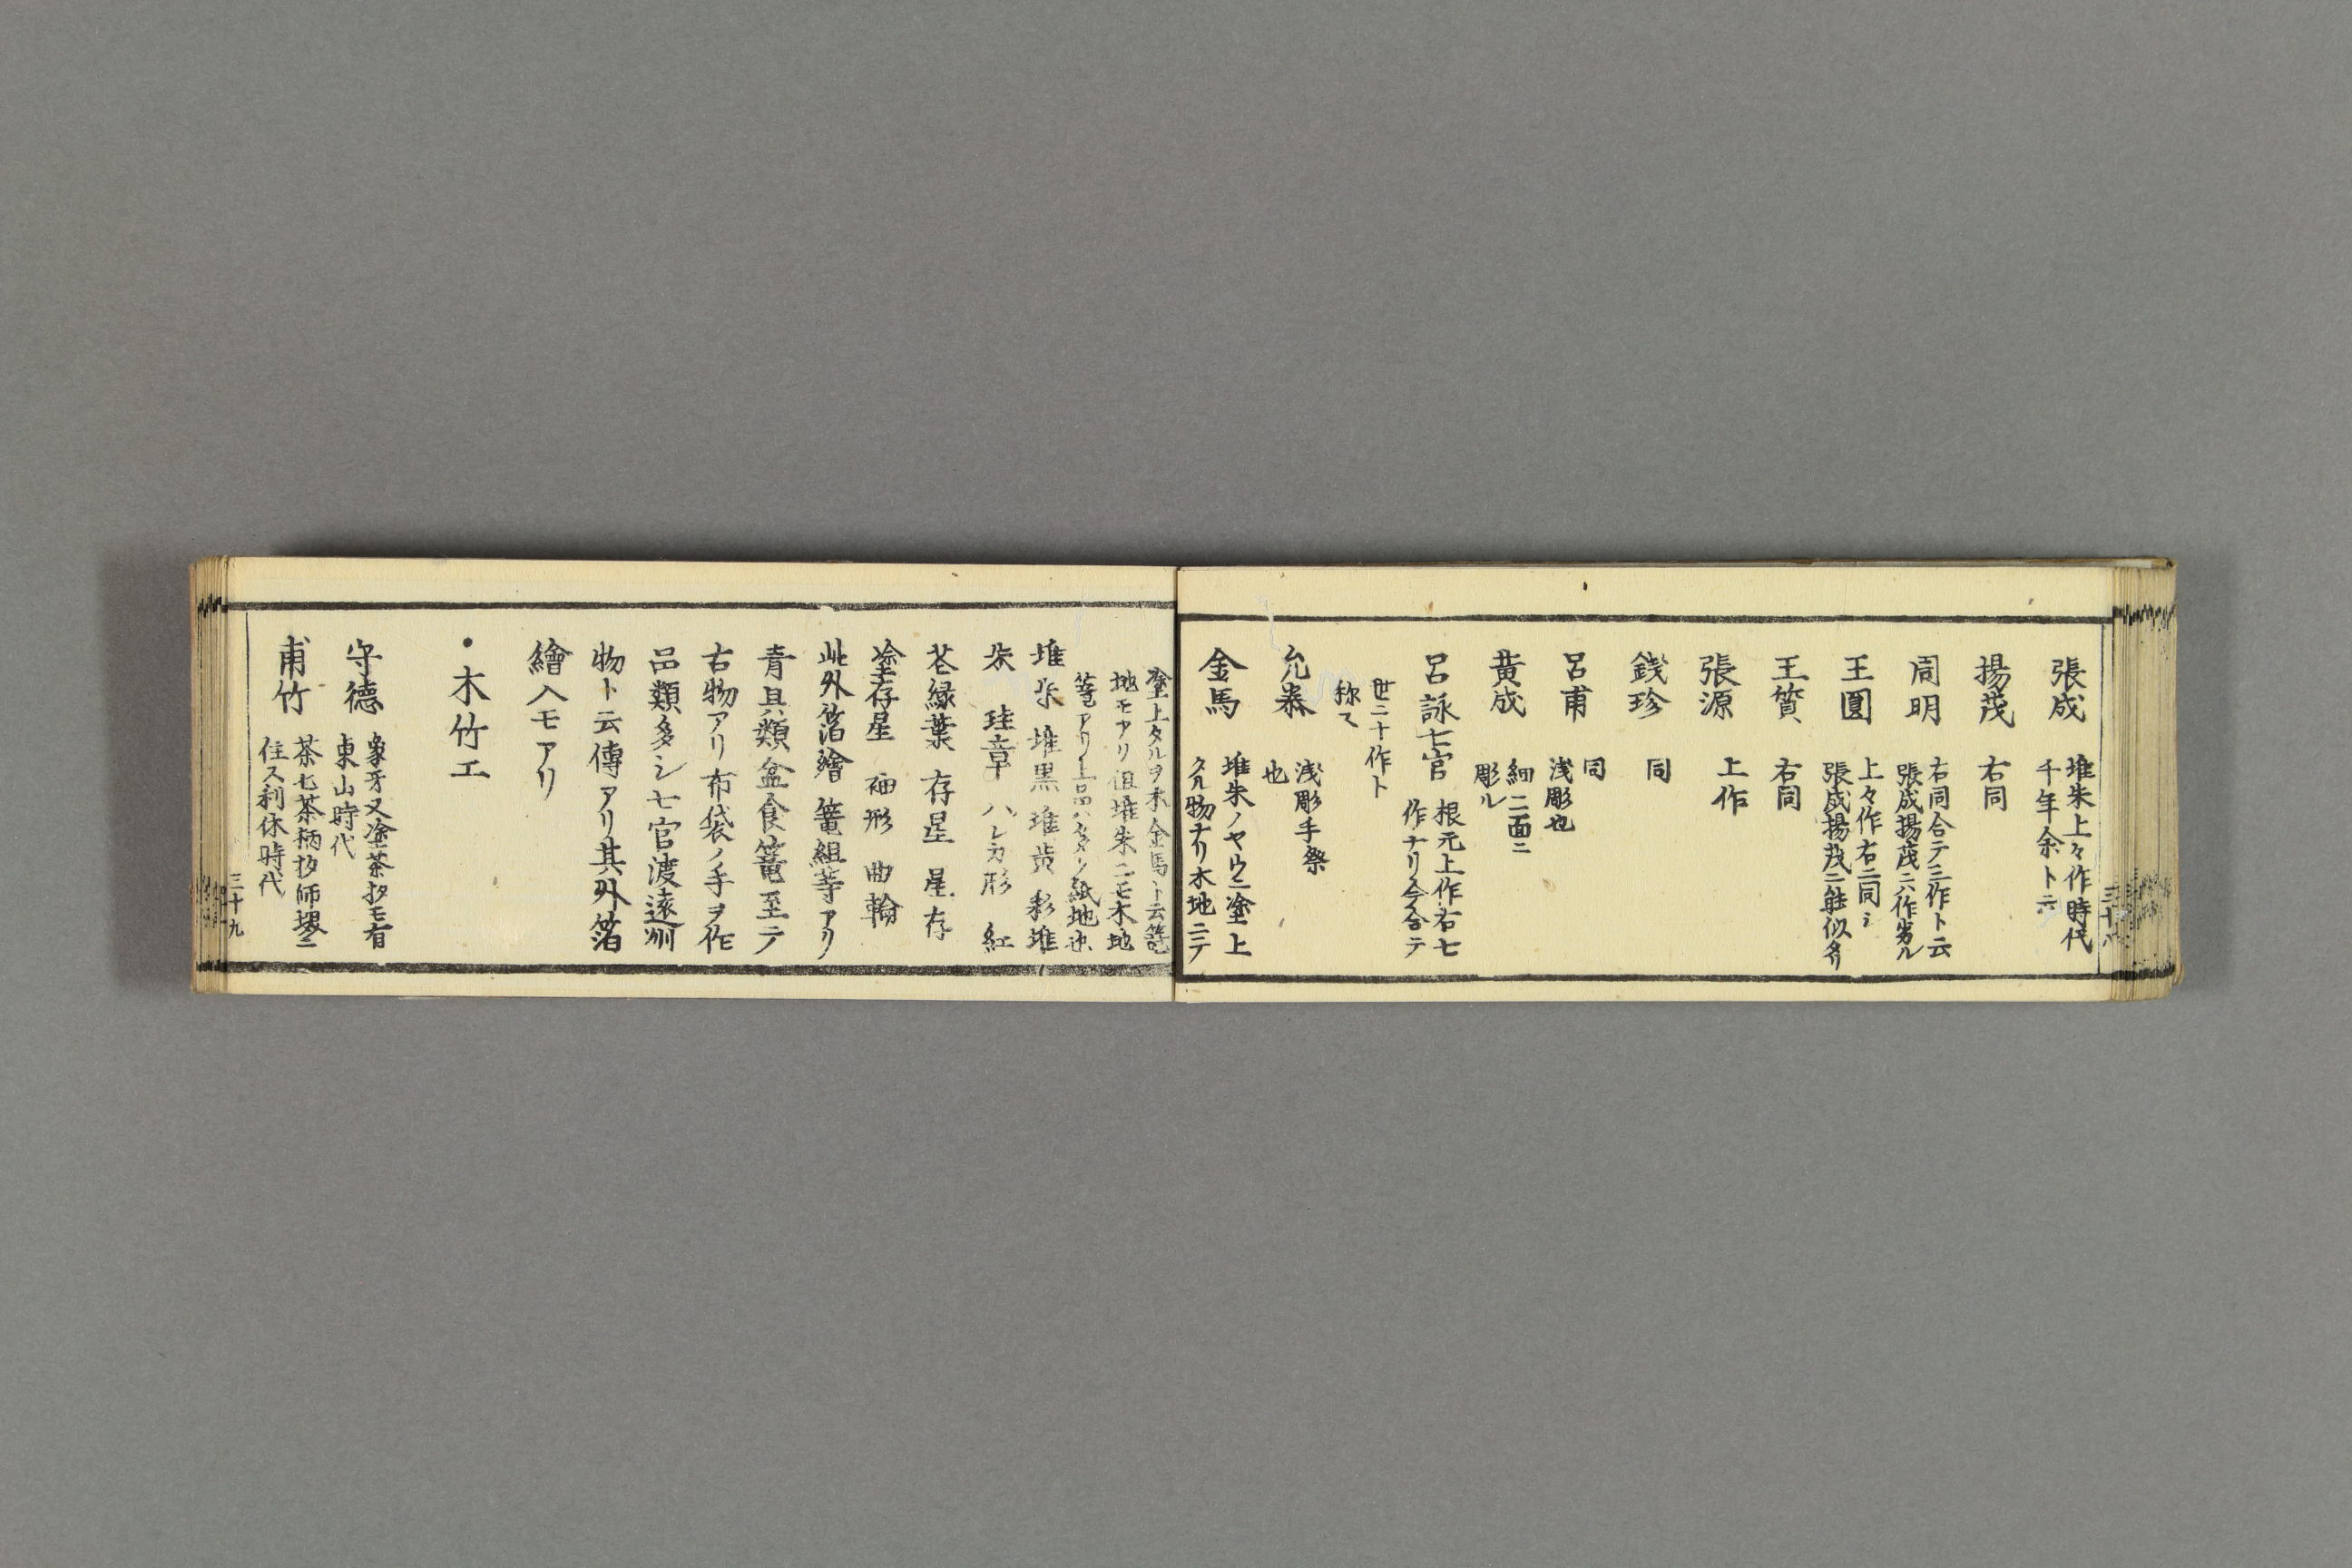 張成
堆朱上々作時代
千年余ト云
揚茂
右同
周明
右同合テ三作ト云
張成揚茂ニハ作劣ル
王圓
上々作右ニ同シ
張成揚茂ニ能似タリ
王賀
右同
張源
上作
銭珍
同
呂甫
同
浅彫也
黄成
細ニ面ニ
彫ル
呂詠七官
根元上作右七
作ナリ今合テ
世ニ十作ト
称ス
浅彫手
也
金馬
堆朱ノヤウニ塗上
タル物ナリ木地ニテ
塗上タルヲ木金馬ト云籃
地モアリ但堆朱ニモ木地
籃アリ上品ハタダシ紙地也
堆朱 堆黒 堆黄 彩堆
朱 珪章 ハレカ形 紅
花縁葉 存星 星存
塗存星 袖形 曲輪
此外箔繪 篭組等アリ
青貝類盆食篭至テ
古物アリ布袋ノ手ヲ作
品類多シ七官渡遠州
物ト云傳アリ其外箔
繪入モアリ
・木竹工
守德
象牙又塗茶抄モ有
東山時代
甫竹
茶匕茶柄抄師堺ニ
住ス利休時代
三十九
三十八